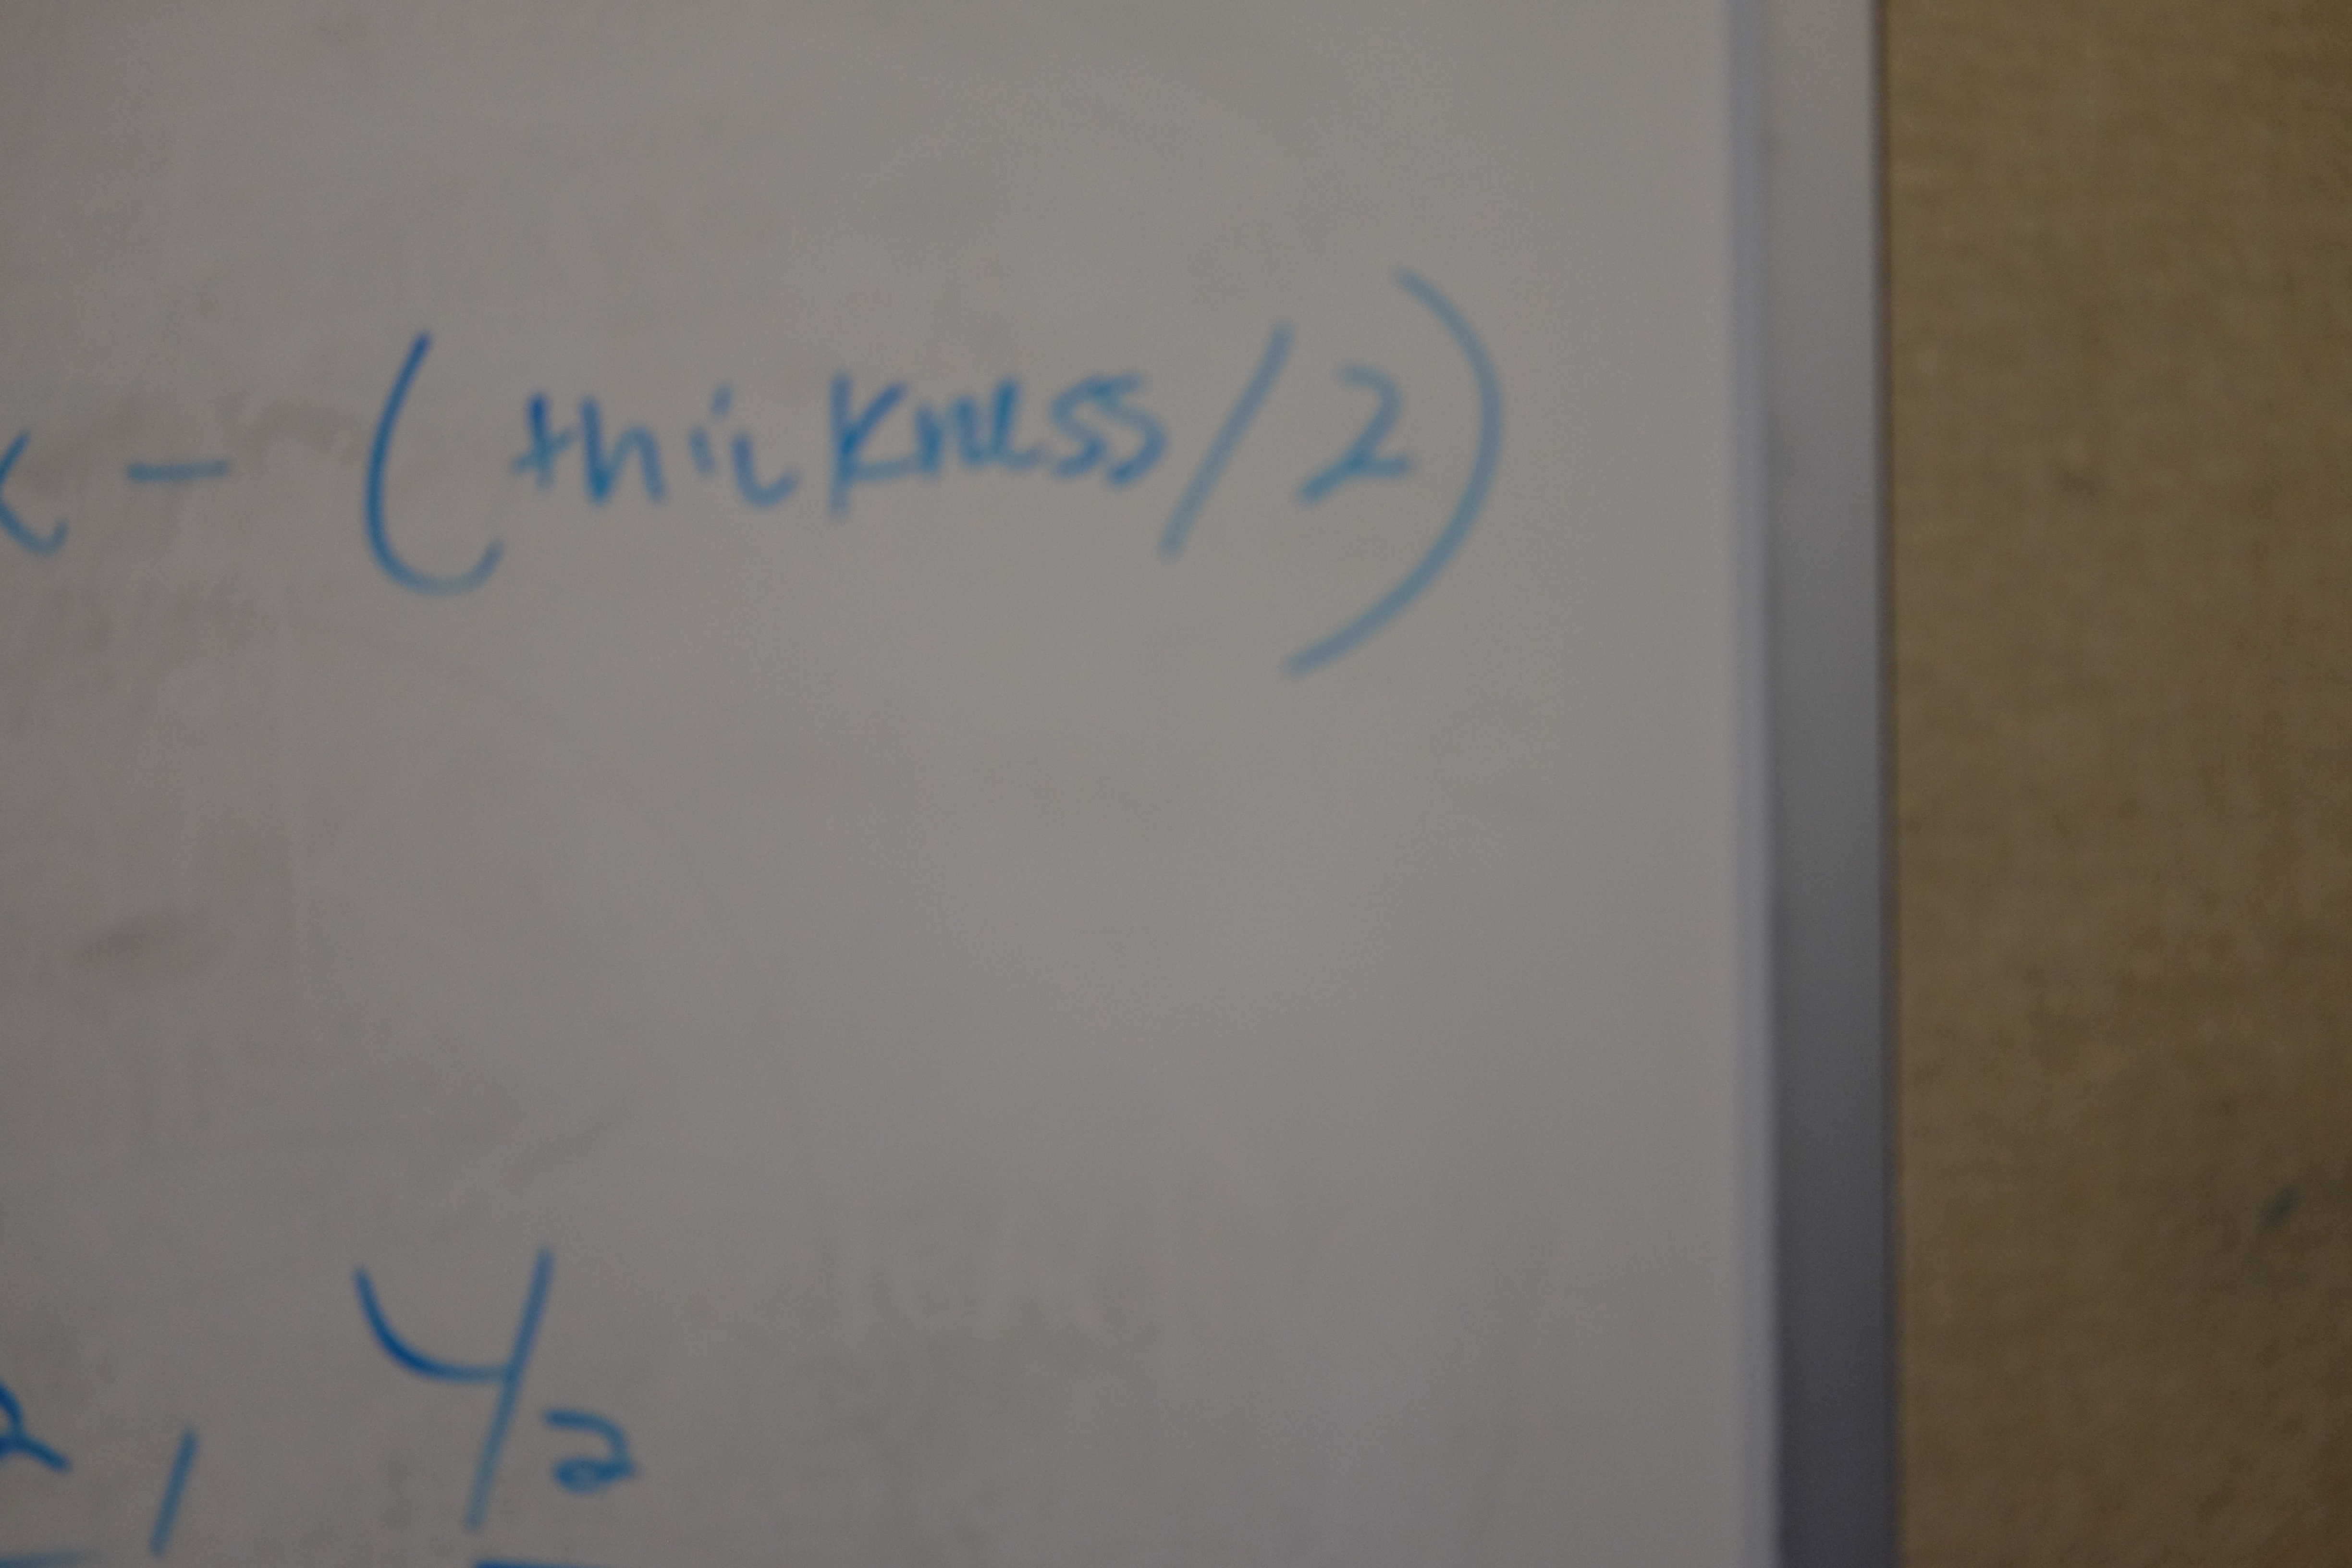 x - (thickness/2)
2, y2